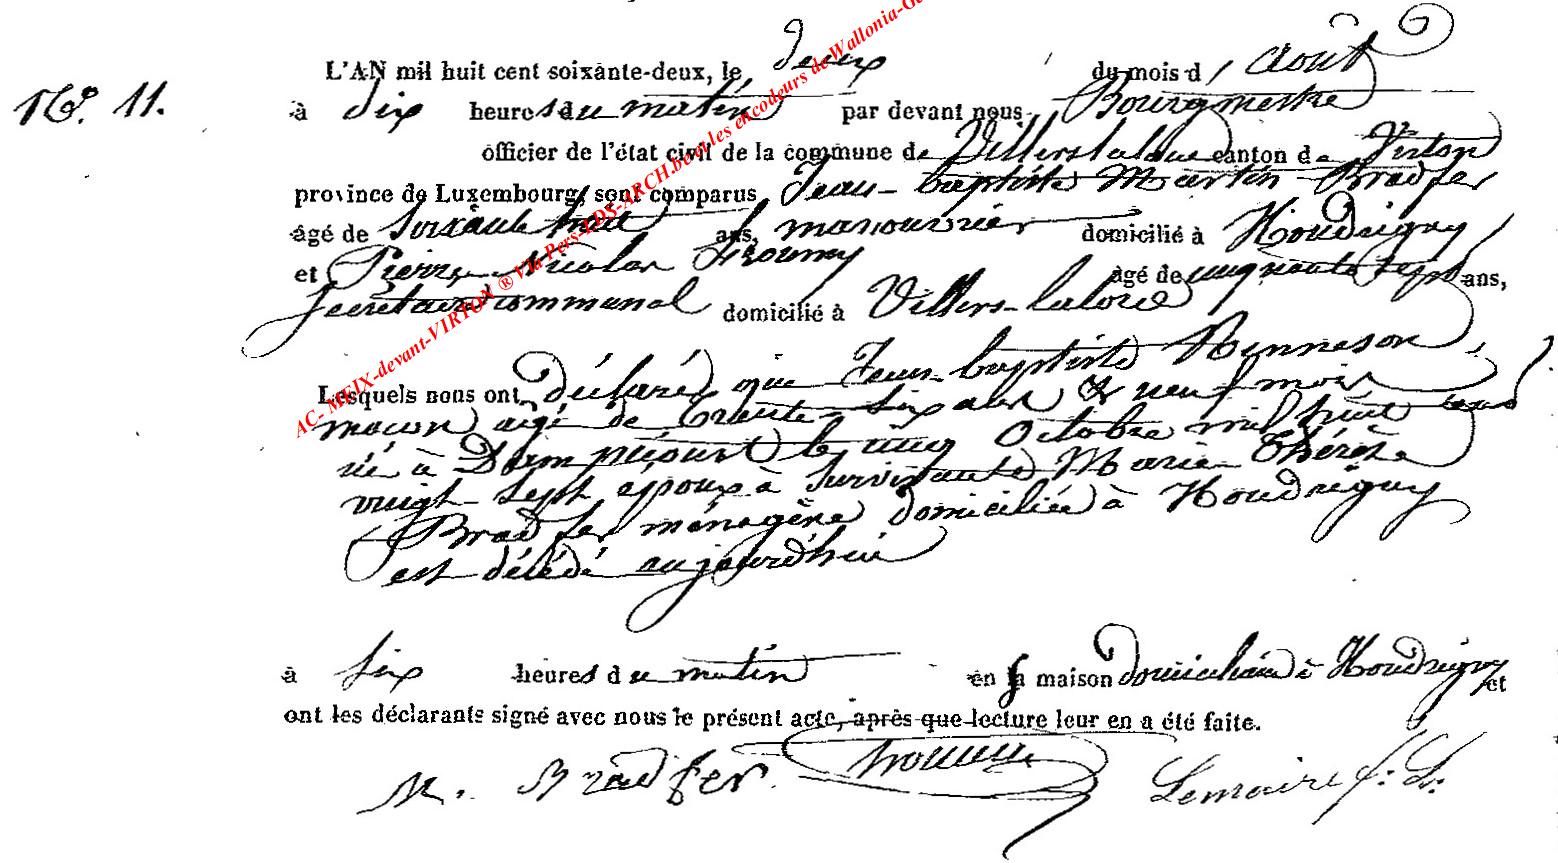 N.º 11.
L'AN mil huit cent soixante-deux, le deux du mois d' Août
à dix heures du matin par devant nous Bourgmestre
officier de l'état civil de la commune de Villers laloue canton de Virton
province de Luxembourg, sont comparus Jean-baptiste Martin Bradfer
âgé de soixante huit ans, manouvrier domicilié à Houdrigny
et Pierre Nicolas âgé de cinquante sept ans,
secrétaire communal domicilié à Villers-laloue
Lesquels nous ont déclaré que Jean-baptiste Renneson,
maçon âgé de trente six ans & neuf mois
né à Dampicourt le cinq Octobre mil huit cent
vingt-sept époux à survivante Marie Thérèse
Bradfer ménagère domiciliée à Houdrigny
est décédé aujourd'hui
à six heures du matin en sa maison à Houdrigny et
ont les déclarants signé avec nous le présent acte, après que lecture leur en a été faite.
M. Bradfer Lemaire f: L:
AC- MEIX-devant-VIRTON ® Via Pers-LDS-ARCH.be et les encodeurs de Wallonia-Ge